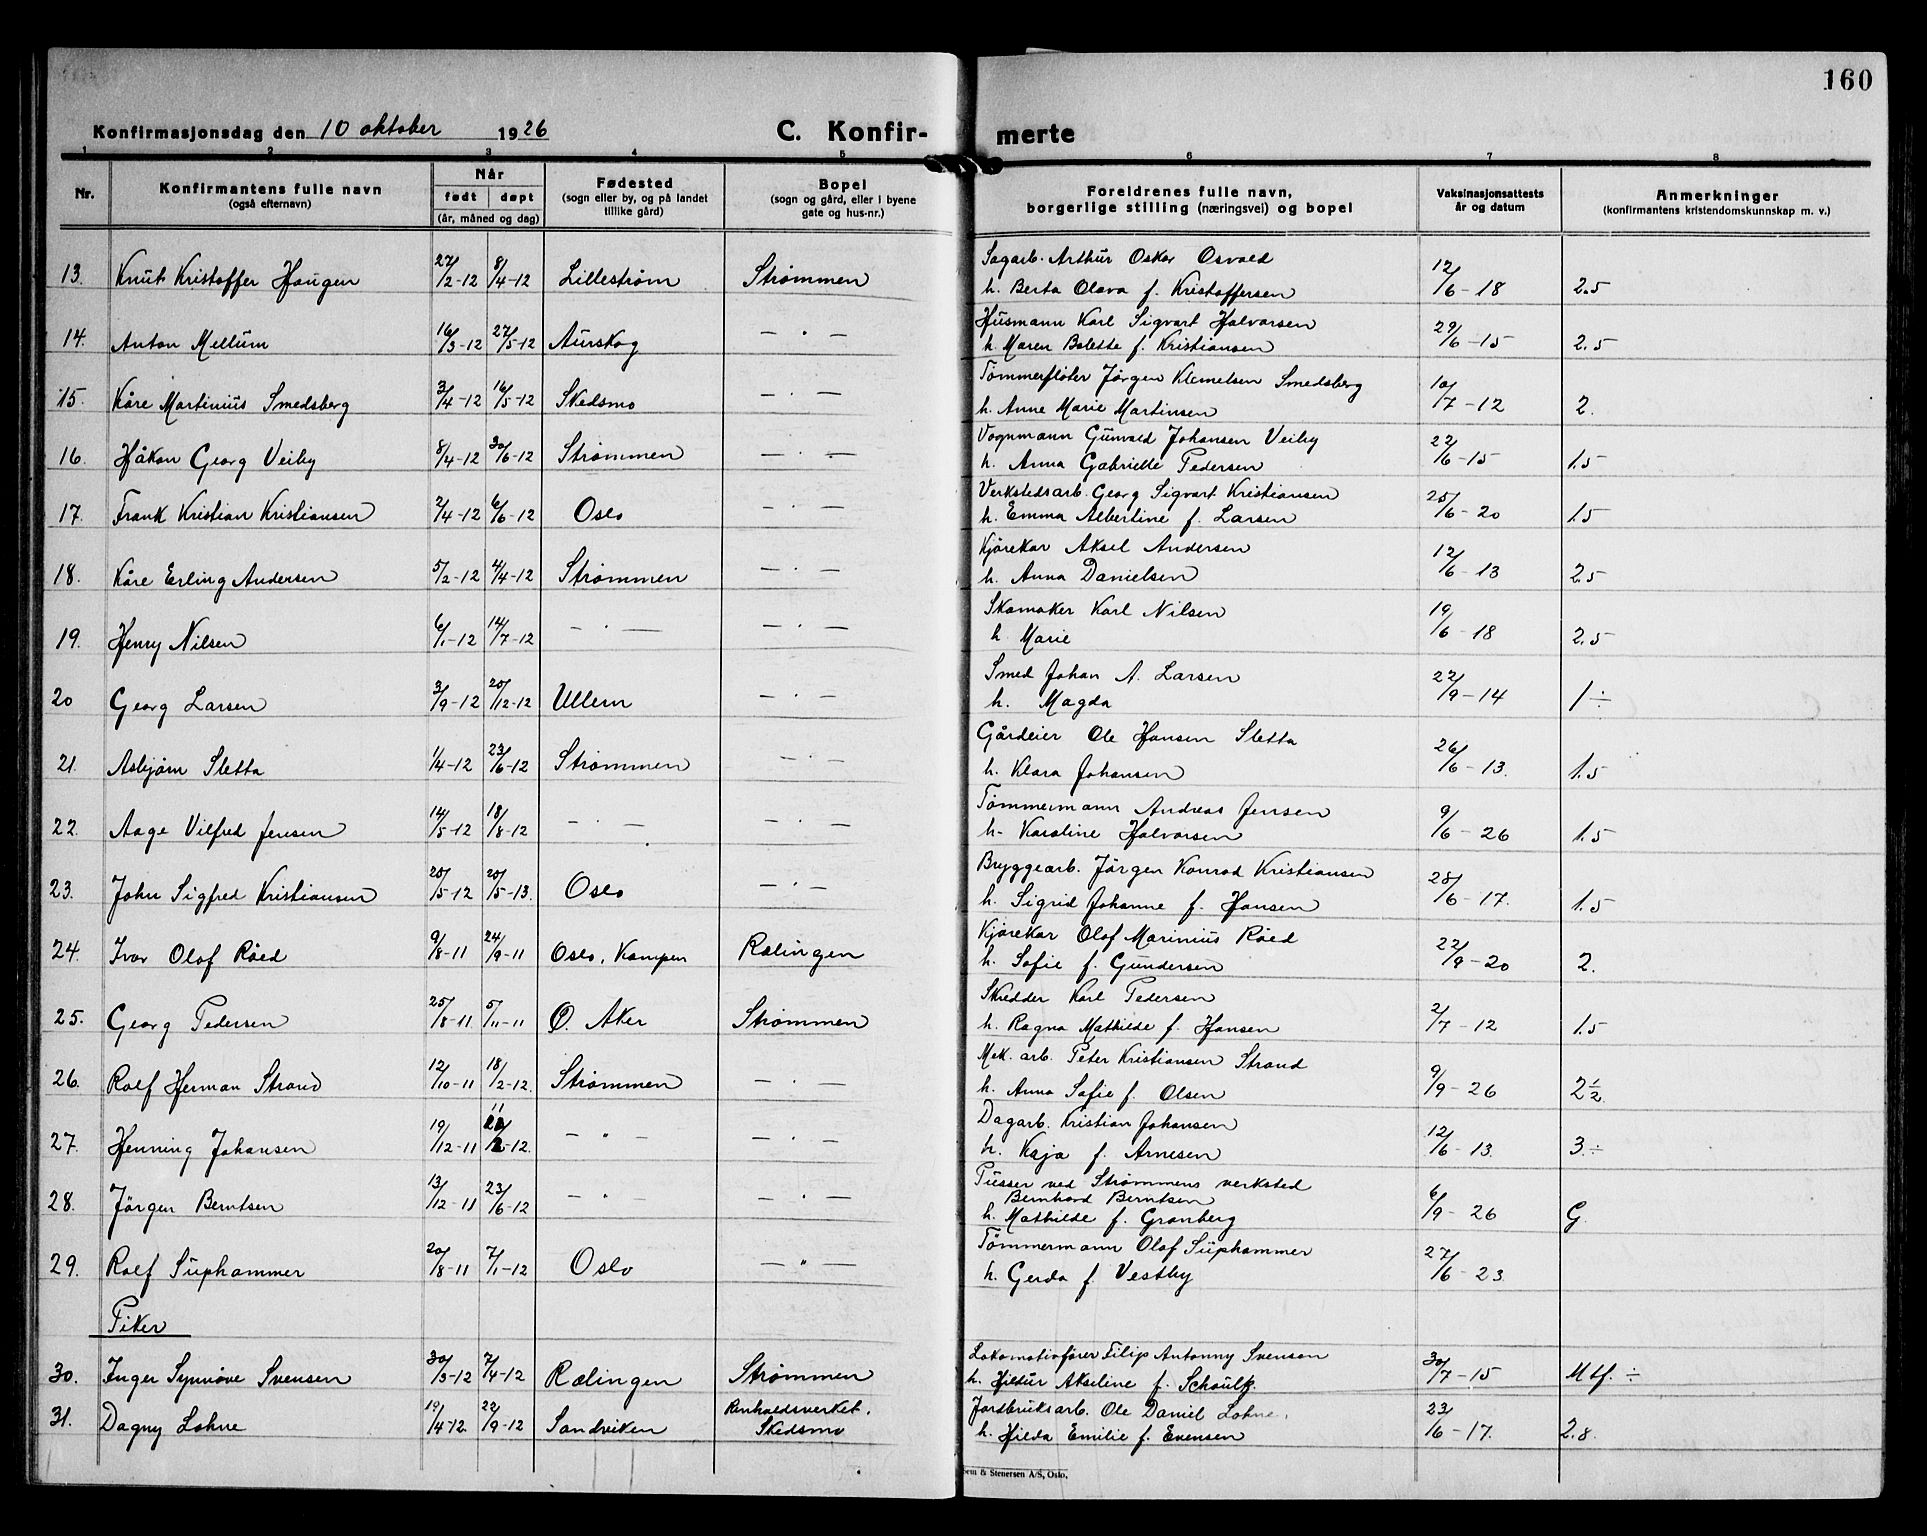 160
Konfirmasjonsdag den 10 oktober 1926 C. Konfir- merte
1 2 3 4 5 6 7 8
Nr. Konfirmantens fulle navn (også efternavn) Når født døpt (år, måned og dag) Fødested (sogn eller by, og på landet tillike gård) Bopel (sogn og gård, eller i byene gate og hus-nr.) Foreldrenes fulle navn, borgerlige stilling (næringsvei) og bopel Vaksinasjonsattests år og datum Anmerkninger (konfirmantens kristendomskunnskap m. v.)
Sagarb. Arthur Oskar Osvald
13. Knut Kristoffer Haugen 27/2-12 8/4-12 Lillestrøm Strømmen h. Berta Olava f. Kristoffersen 12/6-18 2.5
Husmann Karl Sigvart Halvorsen
14. Anton Mellum 16/3-12 27/5-12 Aurskog — · — h. Maren Bolette f. Kristiansen 29/6-15 2.5
Tømmerfløter Jørgen Klemetsen Smedsberg
15. Kåre Martinius Smedsberg 3/4-12 16/5-12 Skedsmo — · — h. Anne Marie Martinsen 10/7-12 2.
Vognmann Gunvald Johansen Veiby
16. Håkon Georg Veiby 8/4-12 30/6-12 Strømmen — · — h. Anna Gabrielle Pedersen 22/6-15 1.5
Verkstedsarb. Georg Sigvart Kristiansen
17. Frank Kristian Kristiansen 2/4-12 6/6-12 Oslo — · — h. Emma Albertine f. Larsen 25/6-20 1.5
Kjørekar Aksel Andersen
18. Kåre Erling Andersen 5/2-12 4/4-12 Strømmen — · — h. Anna Danielsen 12/6-13 2.5
Skomaker Karl Nilsen
19. Henry Nilsen 6/1-12 14/7-12 — · — — · — h. Marie 19/6-18 2.5
Smed Johan A. Larsen
20 Georg Larsen 3/9-12 20/12-12 Ullern — · — h. Magda 22/9-14 1 ÷
Gårdeier Ole Hansen Sletta
21. Asbjørn Sletta 1/4-12 23/6-12 Strømmen — · — h. Klara Johansen 26/6-13. 1.5
Tømmermann Andreas Jensen
22. Aage Vilfred Jensen 14/5-12 18/8-12 — · — — · — h. Karoline Halvorsen 9/6-26 1.5
Bryggearb. Jørgen Konrad Kristiansen
23. John Sigfred Kristiansen 20/5-12 20/5-13. Oslo — · — h. Sigrid Johanne f. Hansen 28/6-17. 1.5
Kjørekar Olaf Marinius Røed
24. Ivar Olaf Røed 9/8-11 24/9-11 Oslo, Kampen Rælingen h. Sofie f. Gundersen 22/9-20 2.
Skredder Karl Pedersen
25. Georg Pedersen 25/8-11 5/11-11 Ø. Aker Strømmen h. Ragna Mathilde f. Hansen 2/7-12 1.5
Mek. arb. Peter Kristiansen Strand
26. Rolf Herman Strand 12/10-11 18/2-12. Strømmen — · — h. Anna Sofie f. Olsen 9/9-26 2 1/2
Dagarb. Kristian Johansen
27. Henning Johansen 19/12-11 11/2-12. — " — — · — h. Kaja f. Arnesen 12/6-13. 3 ÷
Pusser ved Strømmens verksted
Bernhard Berntsen
28. Jørgen Berntsen 13/12-11 23/6-12 — · — — · — h. Mathilde f. Granberg 6/9-26 G.
Tømmermann Olaf Suphammer
29. Rolf Suphammer 20/8-11 7/1-12 Oslo — " — h. Gerda f. Vestby 27/6-23
Piker
Lokomotivfører Filip Antonny Svenson
30. Inger Synnøve Svensen 30/3-12 7/4-12 Rælingen Strømmen h. Hildur Akseline f. 30/7-15 Mtf. ÷
Renholdsverket, Jordbruksarb. Ole Daniel Lohne,
31. Dagny Lohne 19/4-12. 22/9-12 Sandviken Skedsmo h. Hilda Emilie f. Evensen 23/6-17. 2.8.
& Stenersen A/S, Oslo.